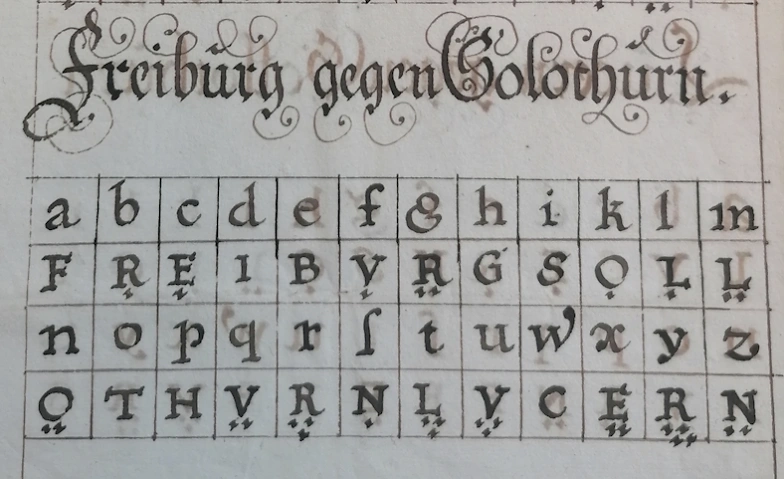 Freibůrg gegen Solothůrn.
a b c d e f g h i k l m
F Ṛ Ẹ I B Ṿ R̤ G S Ọ Ḷ L̤
n o p q r ſ t u w x y z
O̤ T H V̤ R N L V C E R N